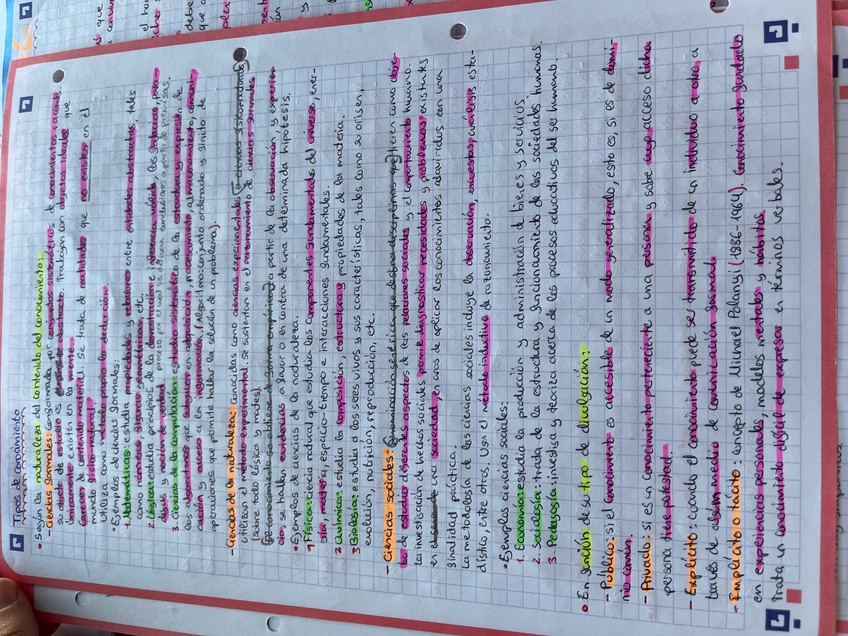 Tipos de conocimiento
• Según la naturaleza del contenido del conocimiento:
- Ciencias formales: conformada por conjuntos sistemáticos de conocimientos racionales.
su objeto de estudio es Trabajan con objetos ideales que
únicamente existen en la mente.
Carecen de contenido material. Se trata de realidades que no existen en el
mundo físico-natural.
Utiliza como método propio la deducción.
• Ejemplos de ciencias formales:
1. Matemáticas: estudia propiedades y relaciones entre entidades abstractas, tales
como números, figuras geométricas, etc.
2. Lógica: estudia principios de la demostración e inferencia válida, las falacias, para-
dojas y noción de verdad.
3. Ciencias de la computación: estudio sistemático de la estructura y expresión de
los algoritmos que subyacen en adquisición, procesamiento, almacenamiento, comuni-
cación y acceso a la información. (Algoritmo: conjunto ordenado y finito de
operaciones que permite hallar la solución de un problema).
- Ciencias de la naturaleza: conocidas como ciencias experimentales
Utilizan el método experimental, se sustentan en el razonamiento de ciencias formales
(sobre todo lógica y mates).
a partir de la observación, y experien-
cia, se hallan evidencias a favor o en contra de una determinada hipótesis.
• Ejemplos de ciencias de la naturaleza:
1. Física: ciencia natural que estudia los componentes fundamentales del universo, ener-
gía, materia, espacio-tiempo e interacciones fundamentales.
2. Química: estudia la composición, estructura y propiedades de la materia.
3. Biología: estudia a los seres vivos y sus características, tales como su origen,
evolución, nutrición, reproducción, etc.
- Ciencias sociales: tienen como obje-
to de estudio diferentes aspectos de las relaciones sociales y el comportamiento humano.
La investigación de hechos sociales permite diagnosticar necesidades y problemas existentes
en una sociedad en aras de aplicar los conocimientos adquiridos con una
finalidad práctica.
La metodología de las ciencias sociales incluye la observación, encuestas, análisis esta-
dístico, entre otros. Usan el método inductivo de razonamiento.
• Ejemplos ciencias sociales:
1. Economía: estudia la producción y administración de bienes y servicios
2. Sociología: trata de la estructura y funcionamiento de las sociedades humanas.
3. Pedagogía: investiga y teoriza acerca de los procesos educativos del ser humano.
• En función de su tipo de divulgación:
- Público: si el conocimiento es accesible de un modo generalizado, esto es, si es de domi-
nio común.
- Privado: si es un conocimiento perteneciente a una persona y sobre cuyo acceso dicha
persona tiene potestad.
- Explícito: cuando el conocimiento puede ser transmitido de un individuo a otro a
través de algún medio de comunicación formal.
- Implícito o tácito: concepto de Michael Polangi (1886-1964). Conocimiento fundado
en experiencias personales, modelos mentales y hábitos.
Trata un conocimiento difícil de expresar en términos verbales.